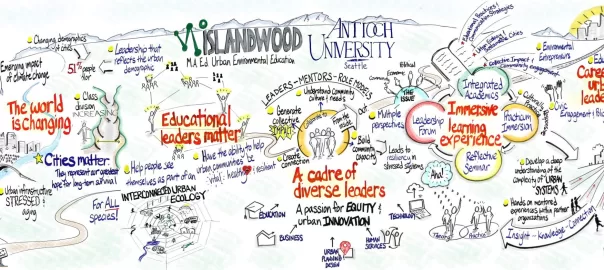 Changing demographics
of cities
Emerging impact
of climate change
51% of people
POOR
The world
is changing
Class
division
INCREASING
Cities matter:
They represent our greatest
hope for long-term survival!
Urban infrastructure
STRESSED &
aging
For ALL
species!
Leadership that
reflects the urban
demographic
ISLANDWOOD
M.A. Ed. Urban Environmental Education
ANTIOCH
UNIVERSITY
Seattle
Educational
leaders matter
Help people see
themselves as part of an
INTERCONNECTED URBAN
ECOLOGY
Have the ability to help
urban communities be
vital, healthy & resilient
LEADERS-MENTORS-ROLE MODELS
Understand Community
culture & needs
Generate
collective
IMPACT
Create
connection
Build
community
capacity
A cadre of
diverse leaders
A passion for EQUITY &
urban INNOVATION
EDUCATION
BUSINESS
URBAN
PLANNING
DESIGN
HUMAN
SERVICES
TECHNOLOGY
Ethical
Economic
THE
ISSUE
Multiple
perspectives
Leads to
resiliency in
stressed systems
Aha!
Theory
Practice
Collective Impact
Community engagement
Integrated
Academics
Leadership
Forum
Immersive
learning
experience
Practicum
Immersion
Reflective
Seminar
Environmental
Entrepreneurs
Civic
Develop a deep
understanding of the
complexity of URBAN
SYSTEMS
Hands on mentored
experiences within partner
organizations
Insight - Knowledge - Connection